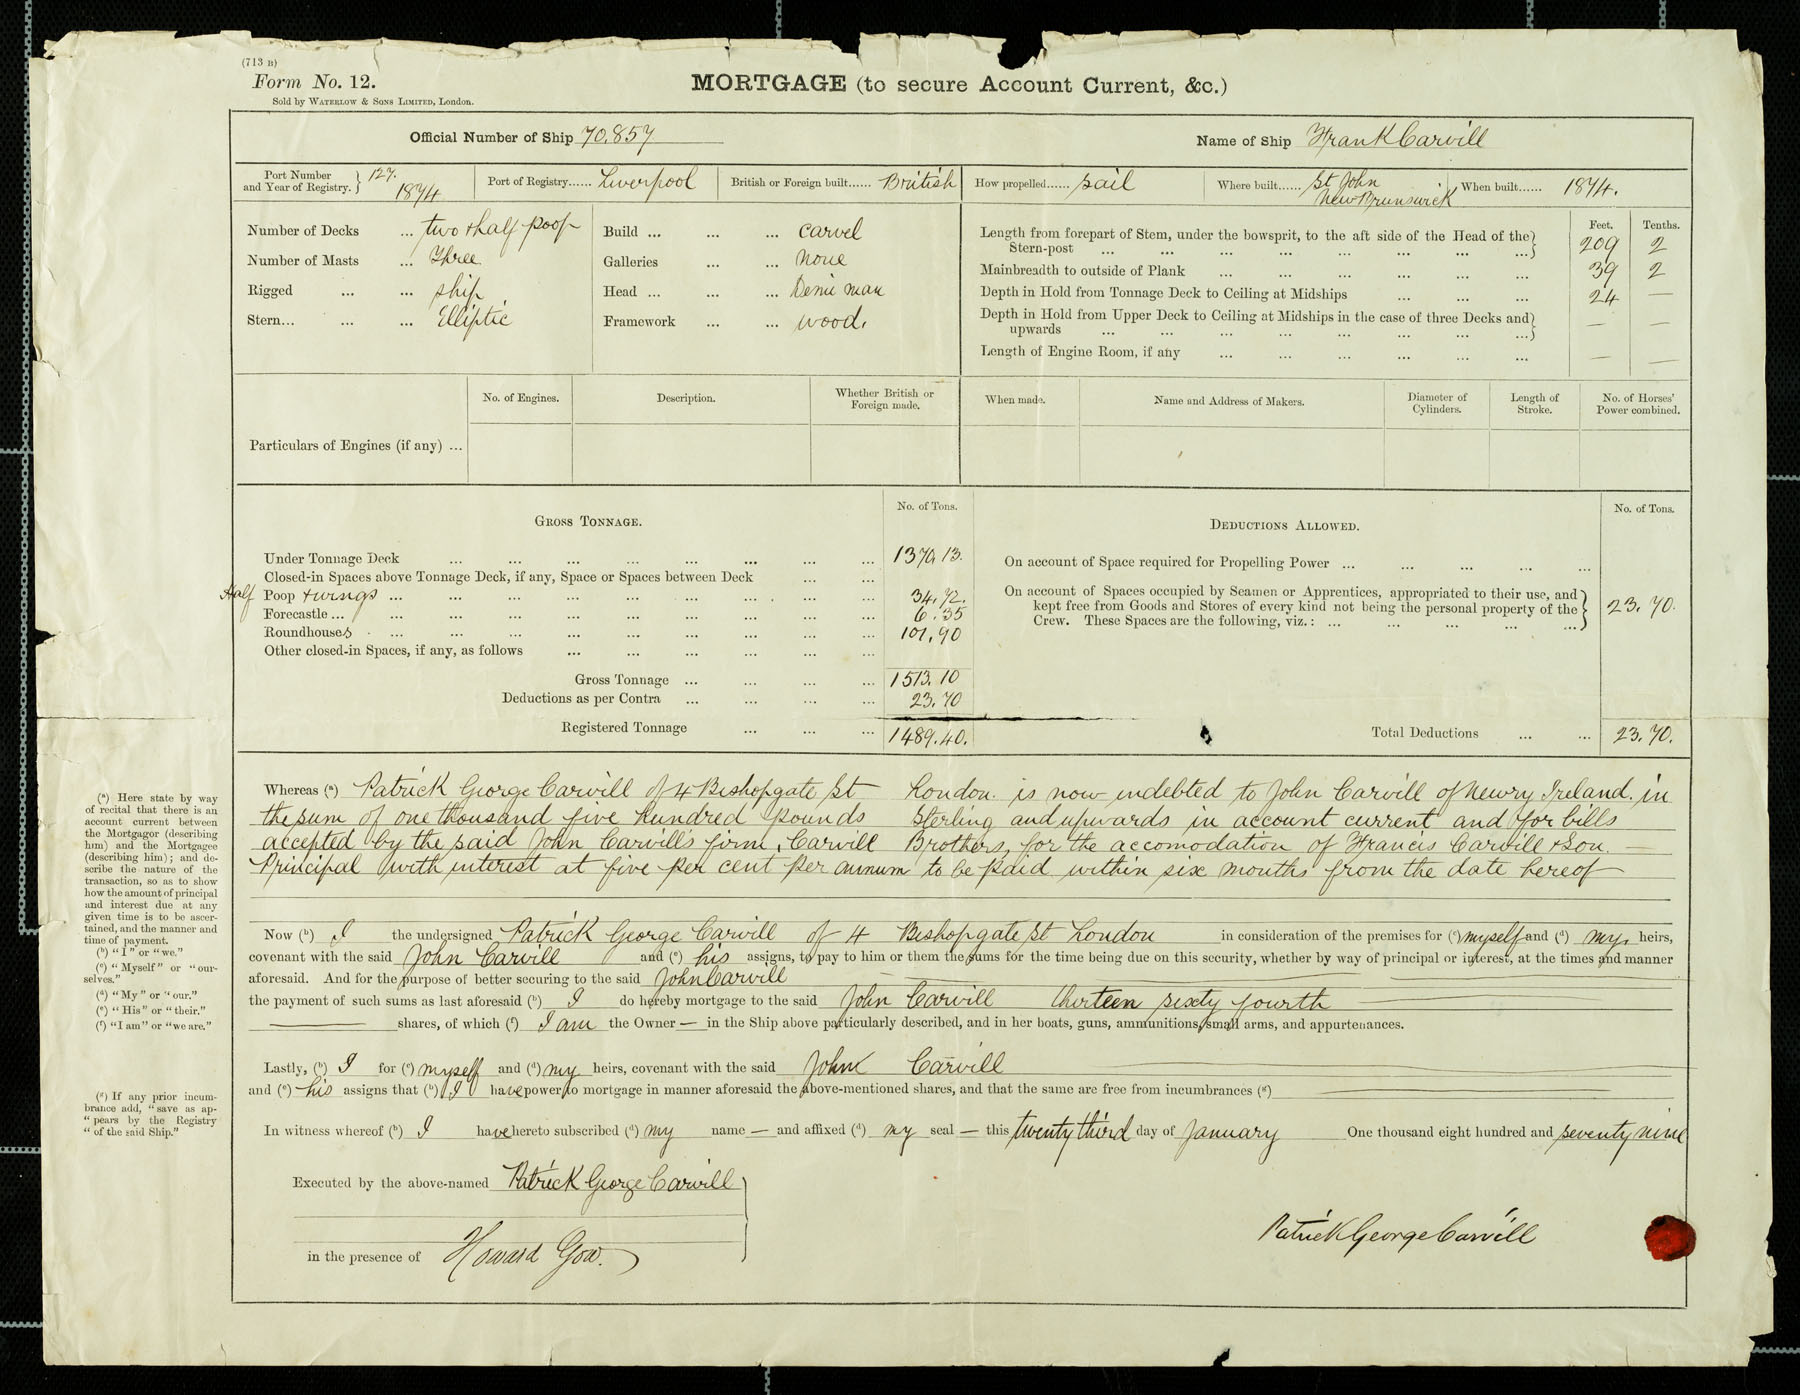 (713 B)
Form No. 12.
Sold by WATERLOW & SONS LIMITED, London.
MORTGAGE (to secure Account Current, &c.)
Official Number of Ship 70.857
Name of Ship Frank Carvill
Port Number and Year of Registry. } 127. 1874
Port of Registry...... Liverpool
British or Foreign built...... British
How propelled...... Sail
Where built...... St John New Brunswick
When built...... 1874.
Number of Decks ... two & half poop
Number of Masts ... Three
Rigged ... ... ship
Stern... ... ... Elliptic
Build ... ... ... carvel
Galleries ... ... none
Head ... ... ... Demi man
Framework ... ... wood.
Feet. Tenths.
Length from forepart of Stem, under the bowsprit, to the aft side of the Head of the
Stern-post ... ... ... ... ... ... ... ...} 209 2
Mainbreadth to outside of Plank ... ... ... ... ... ... 39 2
Depth in Hold from Tonnage Deck to Ceiling at Midships ... ... ... 24 —
Depth in Hold from Upper Deck to Ceiling at Midships in the case of three Decks and
upwards ... ... ... ... ... ... ... ...} — —
Length of Engine Room, if any ... ... ... ... ... ... — —
No. of Engines.
Description.
Whether British or Foreign made.
When made.
Name and Address of Makers.
Diameter of Cylinders.
Length of Stroke.
No. of Horses' Power combined.
Particulars of Engines (if any) ...
GROSS TONNAGE.
No. of Tons.
Under Tonnage Deck ... ... ... ... ... ... ... ... 1370.13.
Closed-in Spaces above Tonnage Deck, if any, Space or Spaces between Deck ... ...
Half Poop & wings ... ... ... ... ... ... ... ... ... 34.72.
Forecastle ... ... ... ... ... ... ... ... ... ... 6.35
Roundhouses ... ... ... ... ... ... ... ... ... 101.90
Other closed-in Spaces, if any, as follows ... ... ... ... ... ...
Gross Tonnage ... ... ... ... 1513.10
Deductions as per Contra ... ... ... ... 23.70
Registered Tonnage ... ... ... 1489.40.
DEDUCTIONS ALLOWED.
No. of Tons.
On account of Space required for Propelling Power ... ... ... ... ...
On account of Spaces occupied by Seamen or Apprentices, appropriated to their use, and
kept free from Goods and Stores of every kind not being the personal property of the
Crew. These Spaces are the following, viz.: ... ... ... ... ...} 23.70.
Total Deductions ... ... 23.70.
Whereas (a) Patrick George Carvill of 4 Bishopgate St London. is now indebted to John Carvill of Newry Ireland. in
the sum of one thousand five hundred pounds Sterling and upwards in account current and for bills
accepted by the said John Carvill's firm, Carvill Brothers, for the accomodation of Francis Carvill & Son. —
Principal with interest at five per cent per annum to be paid within six months from the date hereof
Now (b) I the undersigned Patrick George Carvill of 4 Bishopgate St London in consideration of the premises for (c) myself and (d) my heirs,
covenant with the said John Carvill and (e) his assigns, to pay to him or them the sums for the time being due on this security, whether by way of principal or interest, at the times and manner
aforesaid. And for the purpose of better securing to the said John Carvill
the payment of such sums as last aforesaid (b) I do hereby mortgage to the said John Carvill thirteen sixty fourth
shares, of which (f) I am the Owner — in the Ship above particularly described, and in her boats, guns, ammunitions, small arms, and appurtenances.
Lastly, (b) I for (c) myself and (d) my heirs, covenant with the said John Carvill
and (e) his assigns that (b) I have power to mortgage in manner aforesaid the above-mentioned shares, and that the same are free from incumbrances (g)
In witness whereof (b) I have hereto subscribed (d) my name — and affixed (d) my seal — this twenty third day of January One thousand eight hundred and seventy nine
Executed by the above-named Patrick George Carvill
in the presence of Howard Gow.
Patrick George Carvill
(a) Here state by way
of recital that there is an
account current between
the Mortgagor (describing
him) and the Mortgagee
(describing him); and de-
scribe the nature of the
transaction, so as to show
how the amount of principal
and interest due at any
given time is to be ascer-
tained, and the manner and
time of payment.
(b) "I" or "we."
(c) "Myself" or "our-
selves."
(d) "My" or "our."
(e) "His" or "their."
(f) "I am" or "we are."
(g) If any prior incum-
brance add, "save as ap-
"pears by the Registry
"of the said Ship."